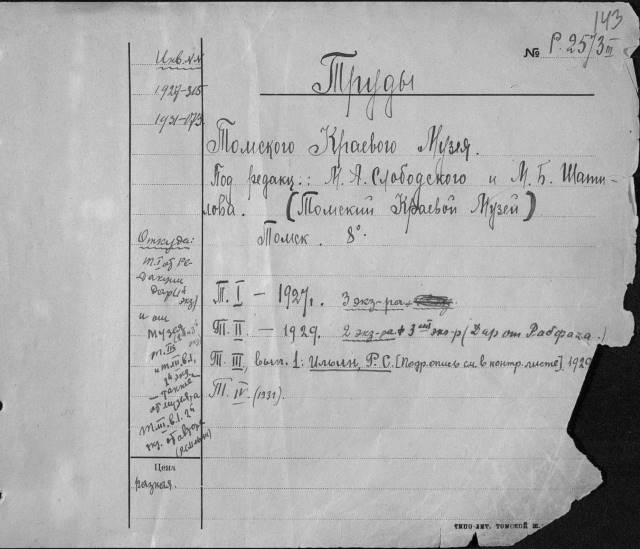 143
№ Р.2573 III
Труды
Инв. №№
1927-315
1931-173.
Томского Краевого Музея.
Под редакц.: М. А. Слободского и М. Б. Шати-
лова. (Томский Краевой Музей)
Томск. 8°.
Откуда:
т. I от ре-
дакции
дар (
экз)
и от
музея
т. III
и т. III в. 1,
2й экз.
также
от музея, а
т. III. в. 1. 2й
экз. от автора
Т. I — 1927г. 3 экз-ра
Т. II — 1929. 2 экз-ра + 3ий экз-р (Дар от Рабфака.)
Т. III, вып. 1: Ильин, Р. С. [Подр. опись см. в контр. листе], 1929
Т. IV (1931).
Цена
разная.
ТИПО-ЛИТ. ТОМСКОЙ Ж.